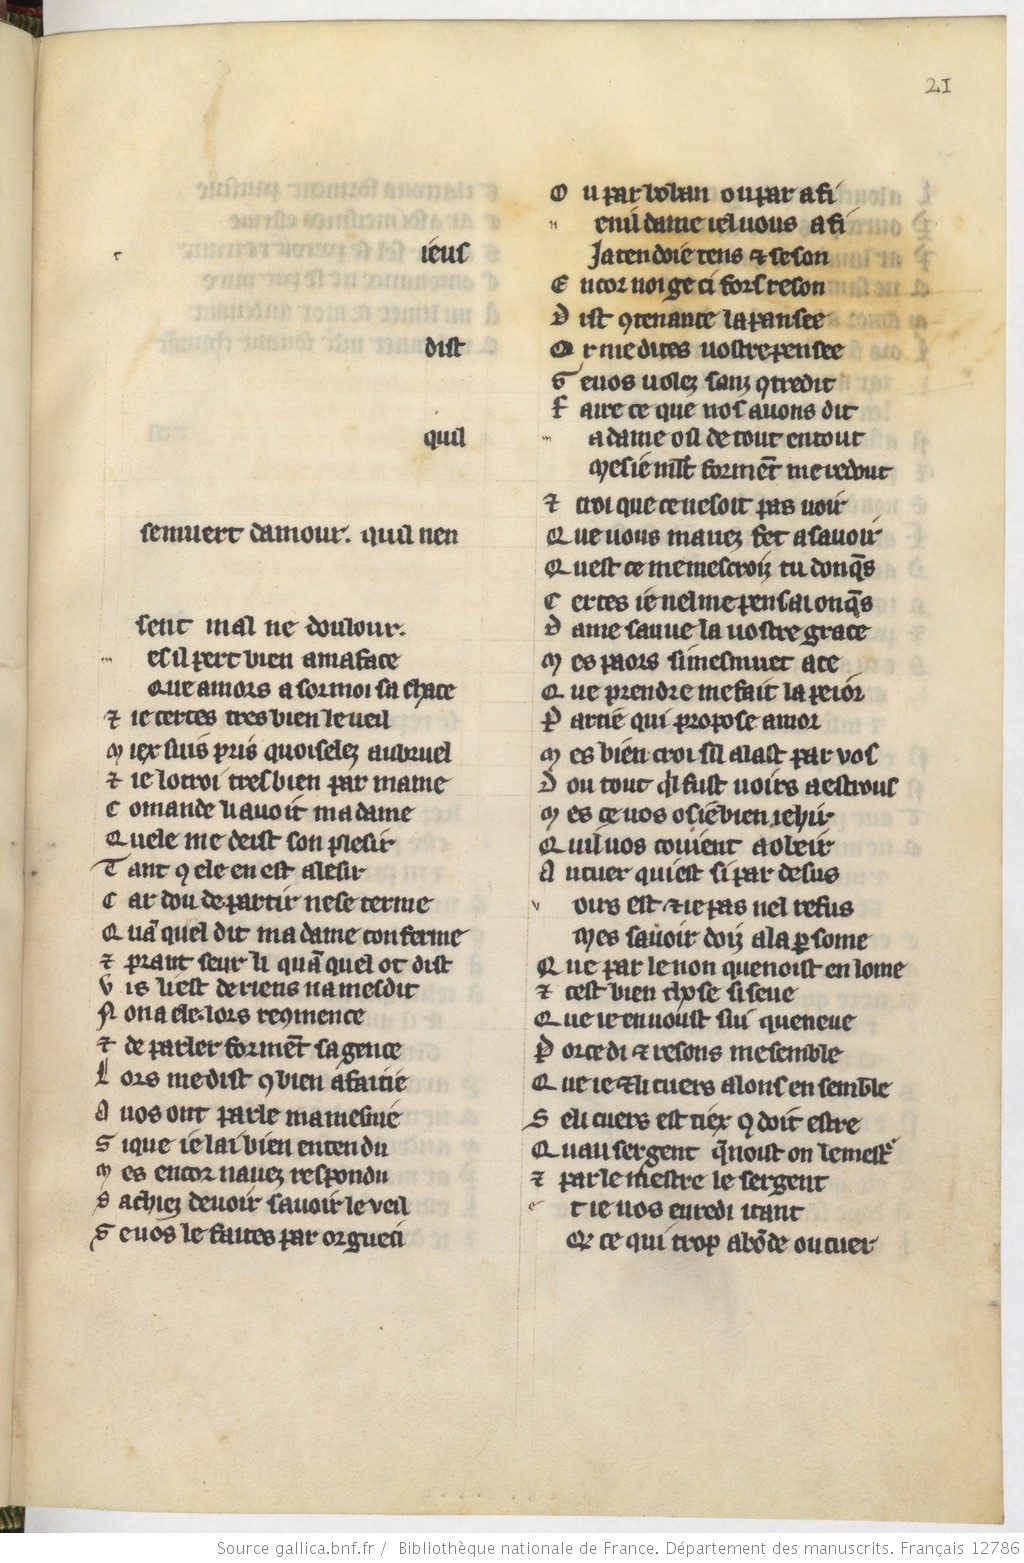 21
r ieus
dist
quil
semuert damour. quil nen
sent mal ne doulour.
m es il pert bien a ma face
Que amors a sor moi sa chace
⁊ ie certes tres bien le ueil
Miex suis pris quoiselez au bruel
⁊ ie lotroi tres bien par mame
Comande li auoit ma dame
Quele me deist son plesir
Tant ꝯ ele en est a lesir
Car dou departir ne se terme
Quā quel dit ma dame conferme
⁊ prant seur li quā quel ot dist
Vis li est de riens na mesdit
Non a ele lors reꝯmence
⁊ de parler formēt sagence
Lors me dist ꝯ bien afaitie
A uos ont parle ma mesnie
Si que ie lai bien entendu
Mes encor nauez respondu
Sachiez de uoir sauoir le veil
Se uos le faites par orgueil
Ou par boban ou par afi
n enil dame iel uous afi
Jatendoie tens ⁊ seson
Encor uoi ge ci fors reson
Dist ꝯtenance la pansee
Or me dites uostre pensee
Se uos uolez sanz ꝯtredit
Faire ce que nos auons dit
m a dame oil de tout en tout
Mes ie formēt me redout
⁊ croi que ce ne soit pas uoir
Que uous mauez fet asauoir
Quest ce me mescroiz tu donq̄s
Certes ie nel me pensai onq̄s
Dame sauue la uostre grace
Mes paors si mesmuet a ce
Que prendre me fait la peior
Partie qui propose amor
Mes bien croi sil alast par vos
Dou tout ql fust uoirs a estrous
Mes ce uos os ie bien iehir
Quil uos couient a obeir
Autuer qui est si par desus
v ours est ⁊ ie pas nel refus
Mes sauoir doiz a la ꝑsome
Que par le non quenoist en lome
⁊ cest bien chose si seue
Que ie en uoist sui queneue
Por ce di ⁊ resons me semble
Que ie ⁊ li cuers alons ensemble
Se li cuers est tiex ꝯ doit estre
Quau sergent q̄noist on le mestre
⁊ par le mestre le sergent
e t ie uos en redi itant
Qr ce qui trop abōde ou cuer
Source gallica.bnf.fr / Bibliothèque nationale de France. Département des manuscrits. Français 12786